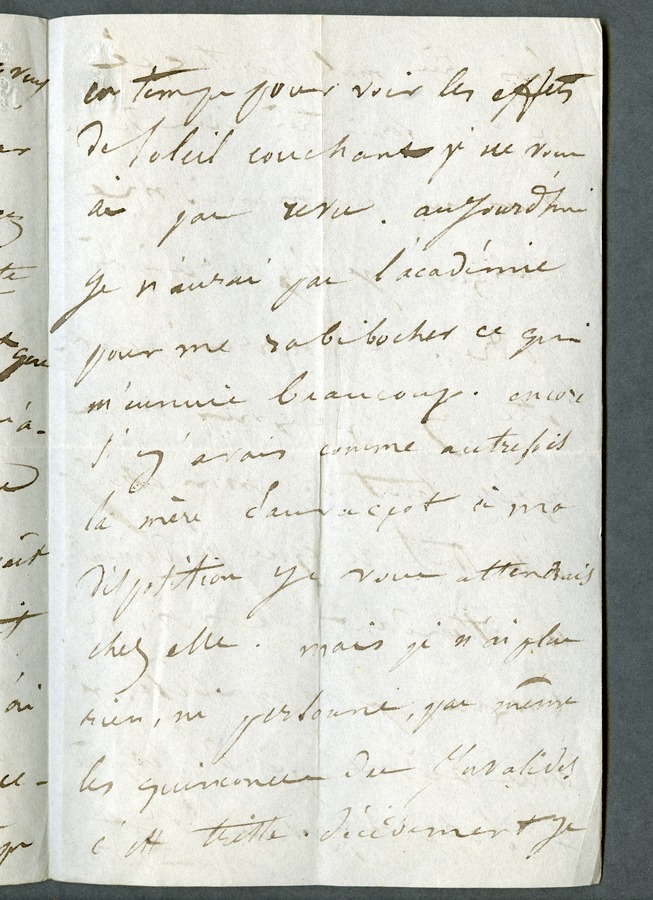 en temps pour voir les effets
de soleil couchant je ne vous
ai pas revu. aujourdhui
je n'aurai pas l'académie
pour me rabibocher ce qui
m'ennuie beaucoup. encore
si j'avais comme autrefois
la mère à ma
disposition je vous attendrais
chez elle. mais je n'ai plus
rien, ni personne, pas même
les quinconces des Invalides
c'est triste. décidément je